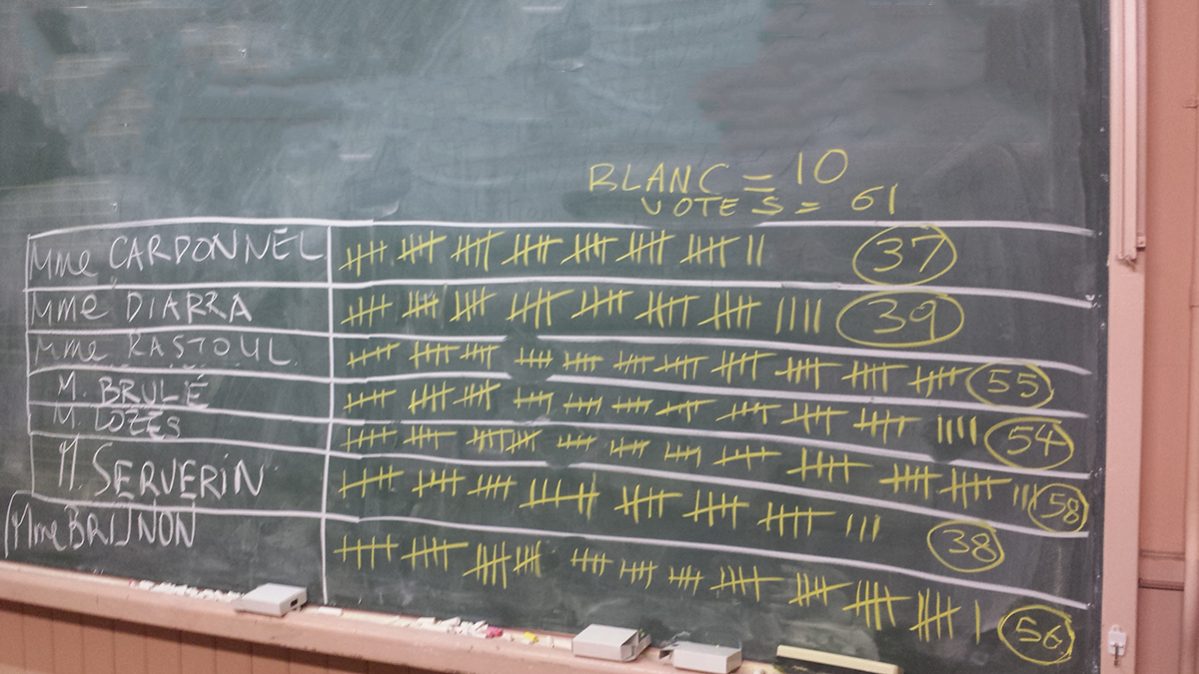 BLANC = 10
VOTES = 61
Mme CARDONNEL 37
Mme DIARRA 39
Mme RASTOUL 55
M. BRULÉ 54
M. LOZES 58
M. SERVERIN 38
Mme BRIJNON 56